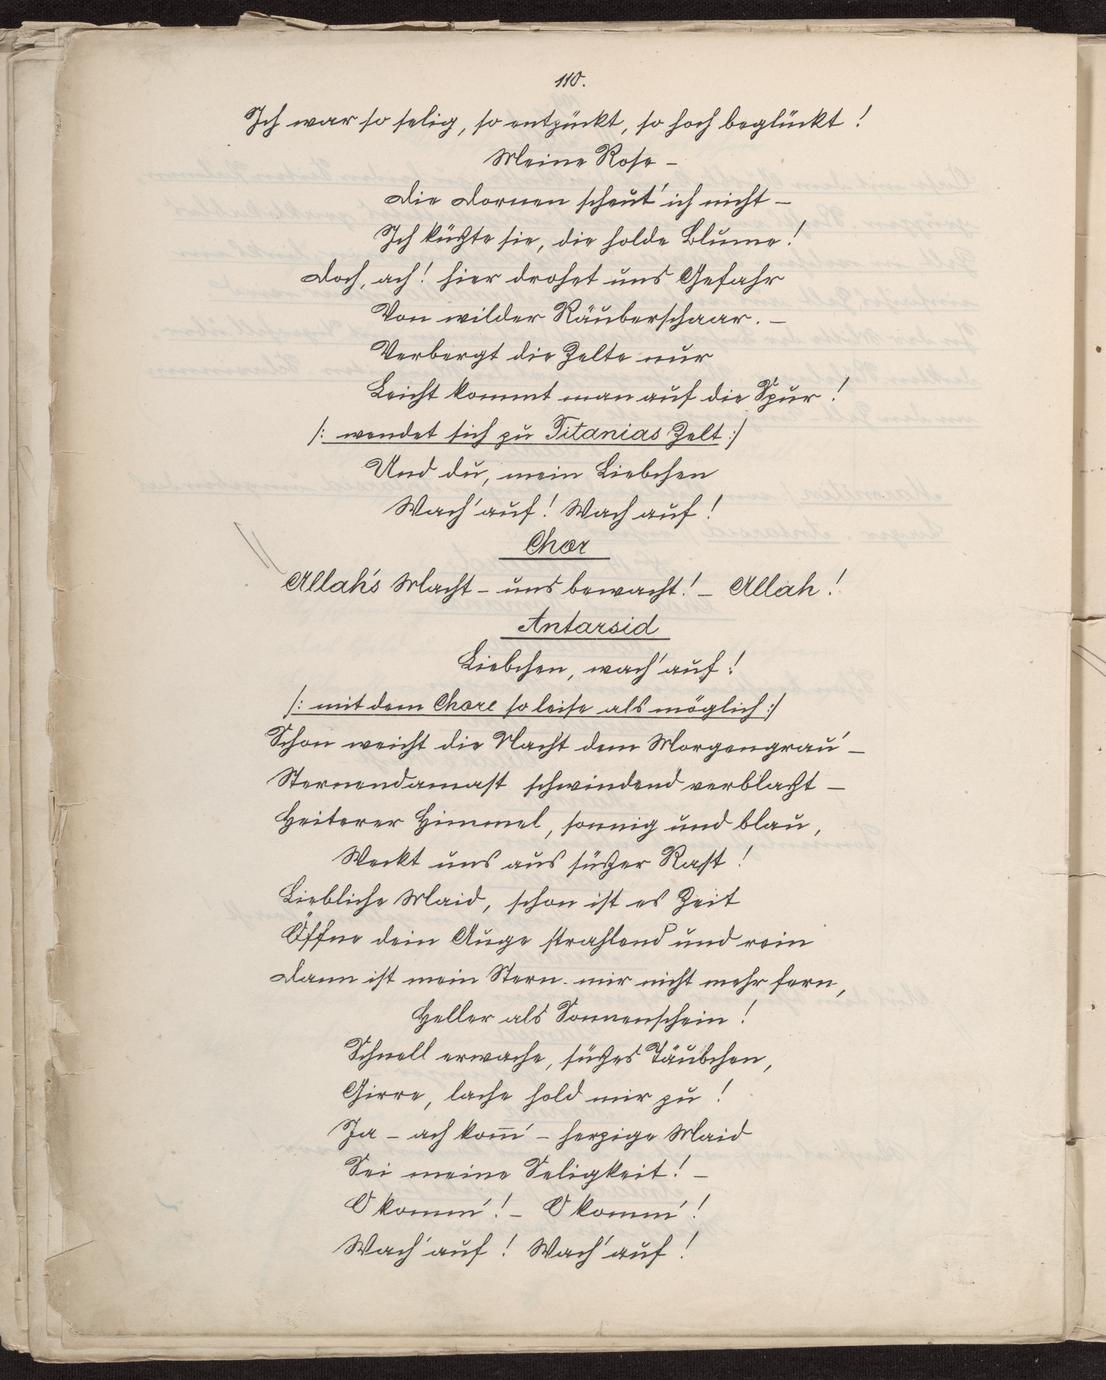 110.
Ich war so selig, so entzückt, so hoch beglückt!
Meine Rose –
Die Dornen scheut' ich nicht –
Ich küßte sie, die holde Blume!
Doch, ach! hier drohet uns Gefahr
Von wilder Räuberschaar. –
Verbergt die Zelte nur
Leicht kommt man auf die Spur!
/: wendet sich zu Titanias Zelt :/
Und du, mein Liebchen
Wach' auf! Wach auf!
Chor
Allah's Macht – uns bewacht! – Allah!
Antarsid
Liebchen, wach' auf!
/: mit dem Chore so leise als möglich :/
Schon weicht die Nacht dem Morgengrau' –
Sternendamast schwindend verblaßt –
Heiterer Himmel, sonnig und blau,
Weckt uns aus süßer Rast!
Liebliche Maid, schon ist es Zeit
Öffne dein Auge strahlend und rein
Dann ist mein Stern mir nicht mehr fern,
Heller als Sonnenschein!
Schnell erwache, süßes Täubchen,
Girre, lache hold mir zu!
Ja – ach kom̄' – herzige Maid
Sei meine Seligkeit! –
O komm'! – O komm'!
Wach' auf! Wach' auf!